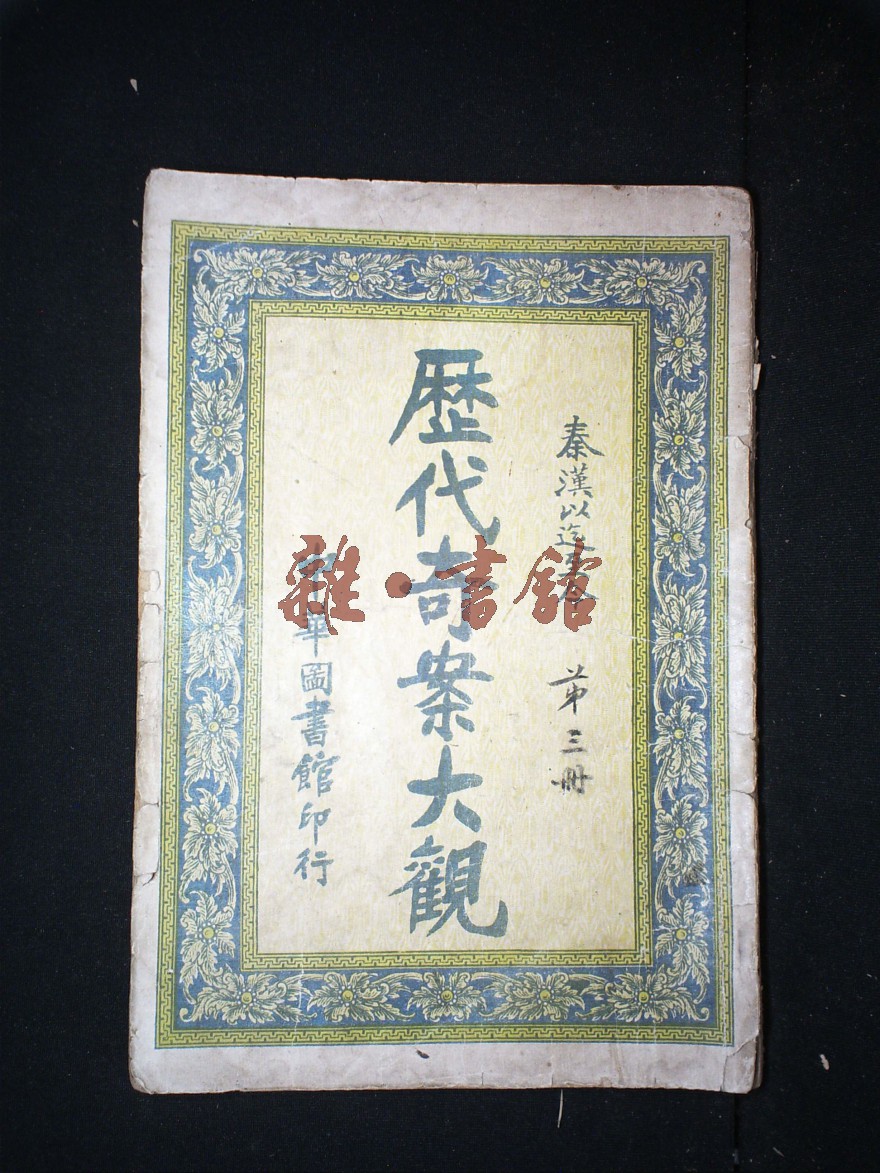 秦漢以迄至今
第三冊
歷代奇案大觀
中華圖書館印行
雜·書館